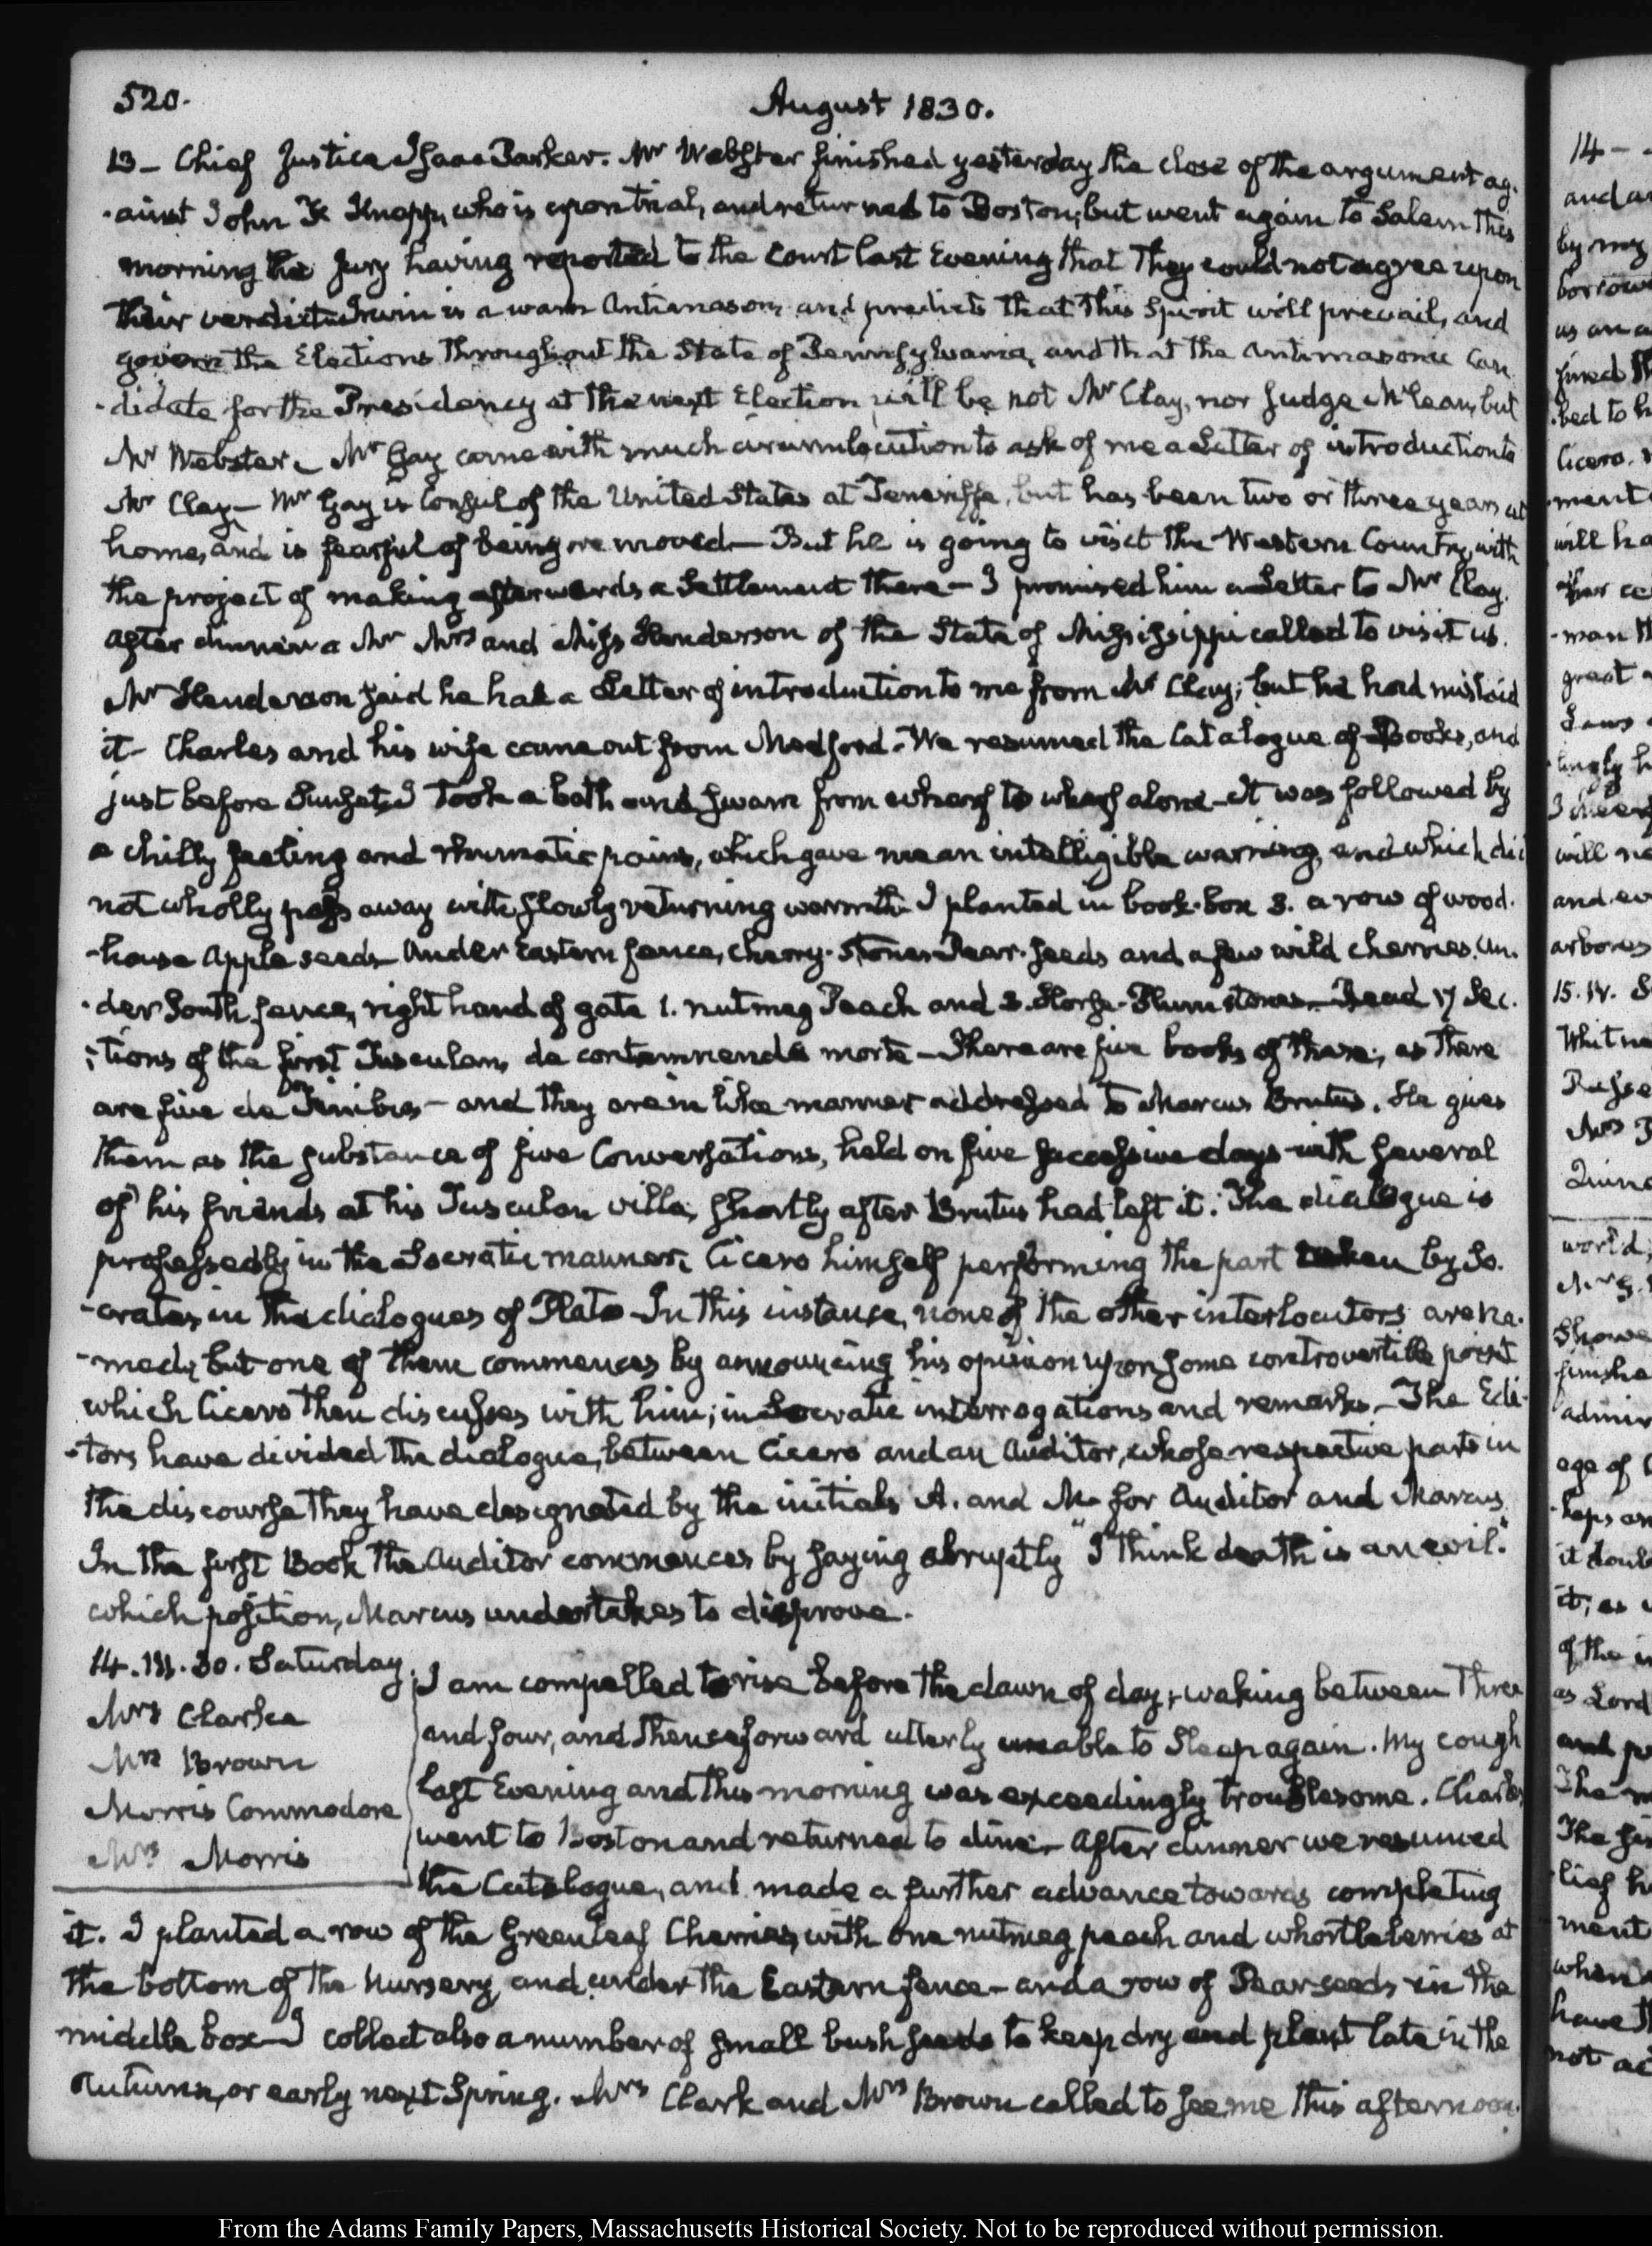 520.
August 1830.
13 – Chief Justice Isaac Parker. Mr Webster finished yesterday the close of the argument ag-
-ainst John F. Knapp, who is upon trial, and returned to Boston; but went again to Salem this
morning the Jury having reported to the Court last Evening that they could not agree upon
their verdict. Irwin is a warm Antimason, and predicts that this Spirit will prevail, and
govern the Elections throughout the State of Pennsylvania, and that the Antimasonic Can
-didate for the Presidency at the next Election, will be not Mr Clay, nor Judge McLean, but
Mr Webster. Mr Gay came with much circumlocution to ask of me a Letter of introduction to
Mr Clay – Mr Gay is Consul of the United States at Teneriffe, but has been two or three years at
home, and is fearful of being removed – But he is going to visit the Western Country, with
the project of making afterwards a Settlement there – I promised him a Letter to Mr Clay.
After dinner a Mr Mrs and Miss Henderson of the State of Mississippi called to visit us.
Mr Henderson said he had a Letter of introduction to me from Mr Clay; but he had mislaid
it – Charles and his wife came out from Medford. We resumed the Catalogue of Books, and
just before Sunset, I took a bath and swam from wharf to wharf alone – It was followed by
a chilly feeling and rheumatic pains, which gave me an intelligible warning, and which did
not wholly pass away with slowly returning warmth. I planted in book-box 3. a row of wood-
-house Apple seeds – Under Eastern fence, cherry-stones Pear-seeds and a few wild cherries. Un-
-der South fence, right hand of gate 1. nutmeg Peach and 3. Horse-Plum stones. – Read 17 Sec-
-tions of the first Tusculan, de contemnenda morte – There are five books of these; as there
are five de Finibus – and they are in like manner addressed to Marcus Brutus. He gives
them as the substance of five Conversations, held on five successive days with several
of his friends at his Tusculan villa, shortly after Brutus had left it. The dialogue is
professedly in the Socratic manner, Cicero himself performing the part taken by So-
-crates, in the dialogues of Plato – In this instance, none of the other interlocutors are na-
-med; but one of them commences by announcing his opinion upon some controvertible point
which Cicero then discusses with him; in Socratic interrogations and remarks – The Edi-
-tors have divided the dialogue, between Cicero and an Auditor, whose respective parts in
the discourse they have designated by the initials A. and M. for Auditor and Marcus.
In the first Book the Auditor commences by saying abruptly "I think death is an evil."
which position, Marcus undertakes to disprove.
14. III. 30. Saturday.
Mrs Clarke
Mrs Brown
Morris Commodore
Mrs Morris
I am compelled to rise before the dawn of day; waking between three
and four, and thenceforward utterly unable to sleep again. My cough
last Evening and this morning was exceedingly troublesome. Charles
went to Boston and returned to dine – After dinner we resumed
the Catalogue, and made a further advance towards completing
it. I planted a row of the Greenleaf Cherries, with one nutmeg peach and whortleberries at
the bottom of the Nursery, and under the Eastern fence – and a row of Pear seeds in the
middle box – I collect also a number of small bush seeds to keep dry and plant late in the
Autumn, or early next Spring. Mrs Clark and Mrs Brown called to see me this afternoon.
From the Adams Family Papers, Massachusetts Historical Society. Not to be reproduced without permission.